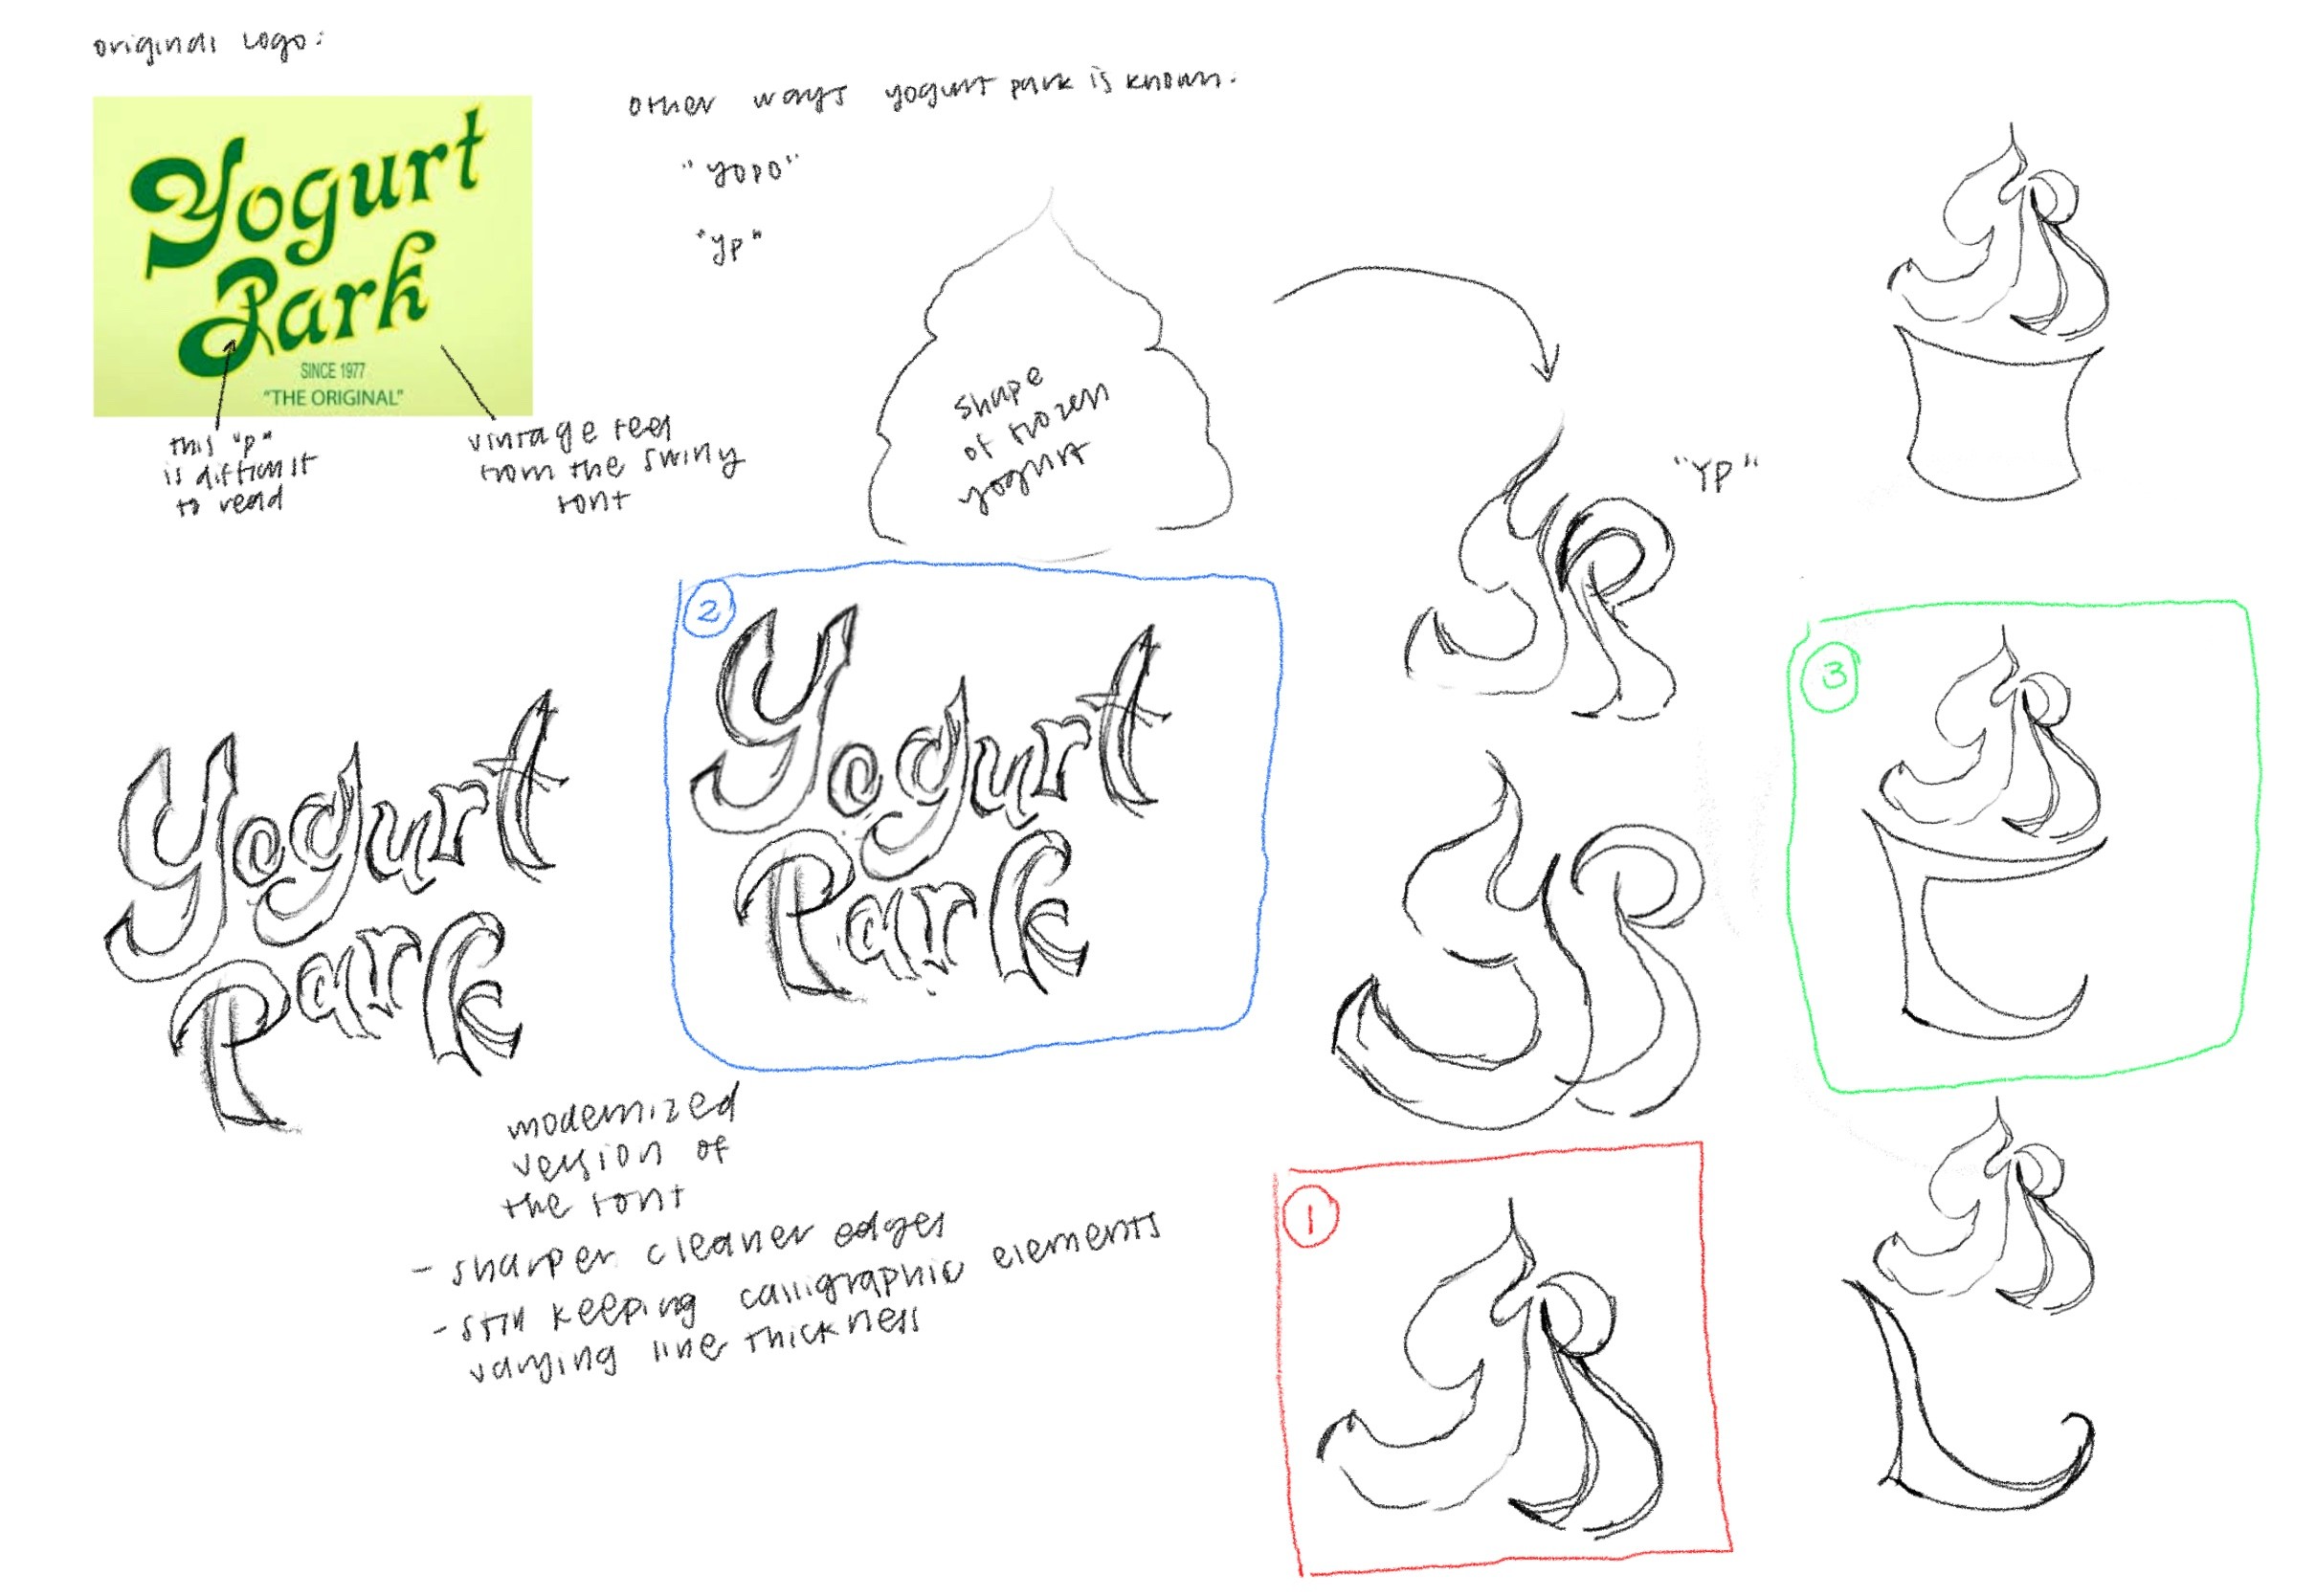 original logo:
Yogurt
Park
SINCE 1977
"THE ORIGINAL"
this "p"
is difficult
to read
vintage feel
from the swirly
font
other ways yogurt park is known:
"yopo"
"yp"
shape
of frozen
yogurt
"YP"
Yogurt
Park
2
Yogurt
Park
modernized
version of
the font
- sharper cleaner edges
- still keeping calligraphic elements
varying line thickness
YP
YP
1
YP
YP
3
YP
YP